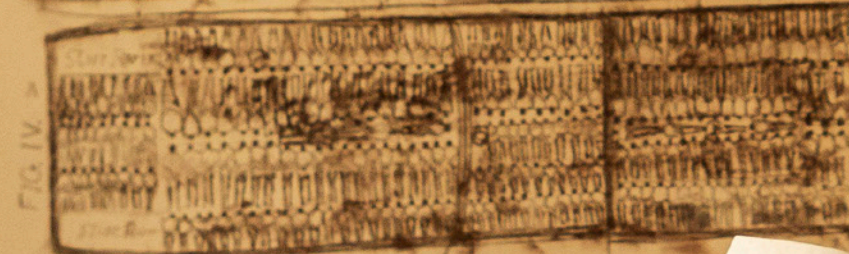 FIG IV.
Store Room
Store Room